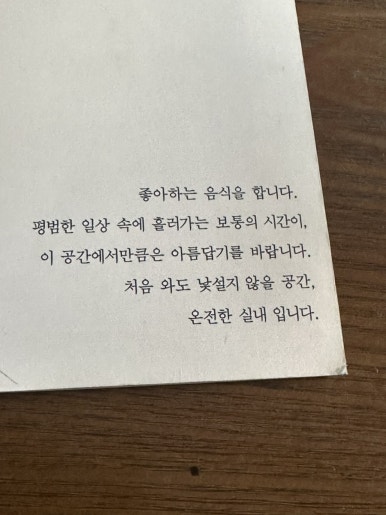 좋아하는 음식을 합니다.
평범한 일상 속에 흘러가는 보통의 시간이,
이 공간에서만큼은 아름답기를 바랍니다.
처음 와도 낯설지 않을 공간,
온전한 실내 입니다.